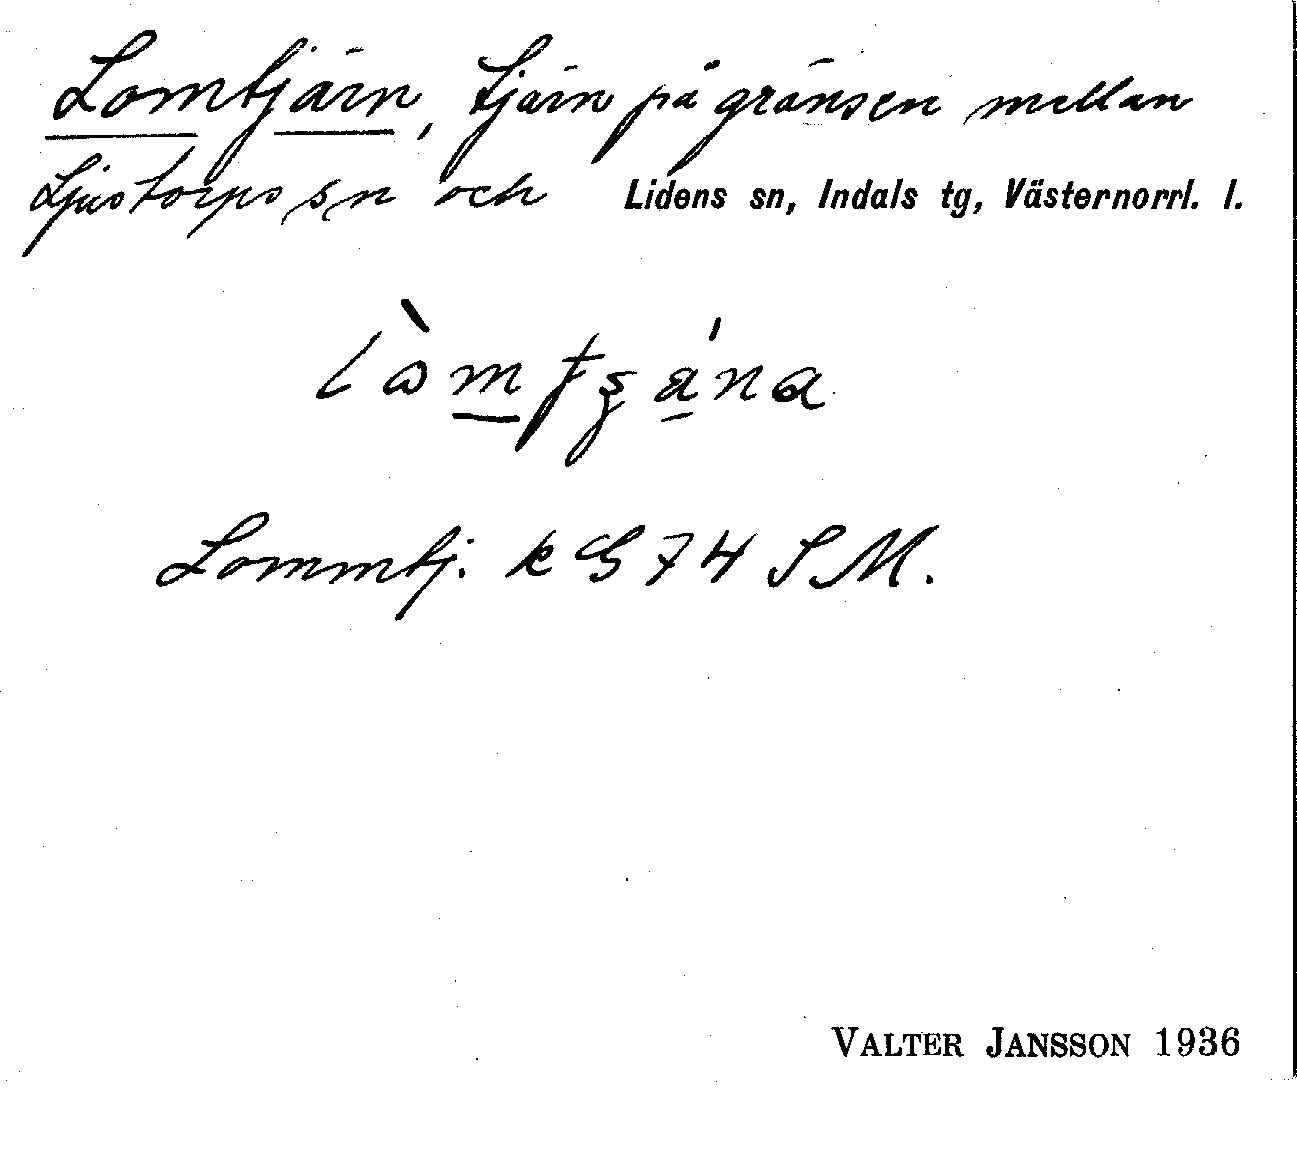 Lomtjärn, tjärn på gränsen mellan
Ljustorps sn och Lidens sn, Indals tg, Västernorrl. l.
Lommtj. k G 74 SM.
VALTER JANSSON 1936